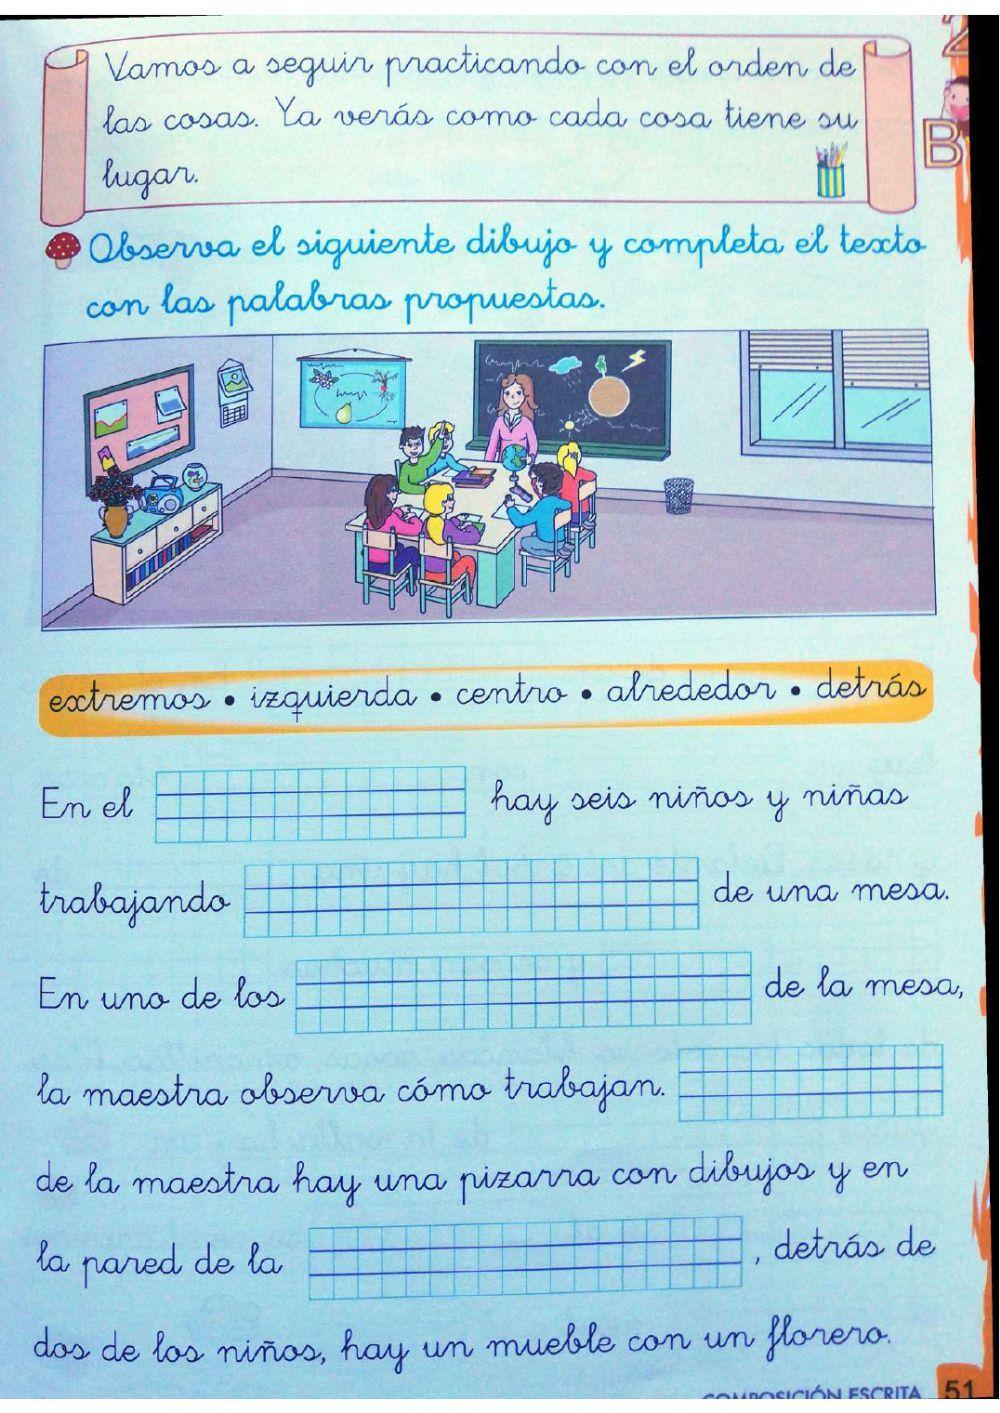 Vamos a seguir practicando con el orden de
las cosas. Ya verás como cada cosa tiene su
lugar.
2
B
Observa el siguiente dibujo y completa el texto
con las palabras propuestas.
extremos • izquierda • centro • alrededor • detrás
En el hay seis niños y niñas
trabajando de una mesa.
En uno de los de la mesa,
la maestra observa cómo trabajan.
de la maestra hay una pizarra con dibujos y en
la pared de la , detrás de
dos de los niños, hay un mueble con un florero.
COMPOSICIÓN ESCRITA 51